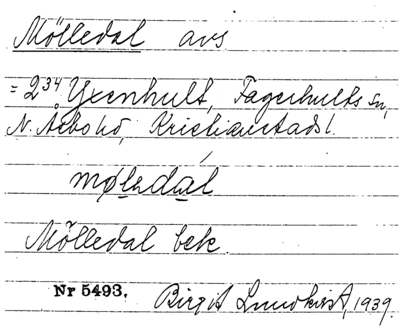 Mölledal avs
= 2³⁴ Yxenhult, Fagerhults sn,
N. Åsbo hd, Kristianstads l.
mǿlẹdȧl
Mölledal bek.
Nr 5493. Birgit Lundkvist, 1939.